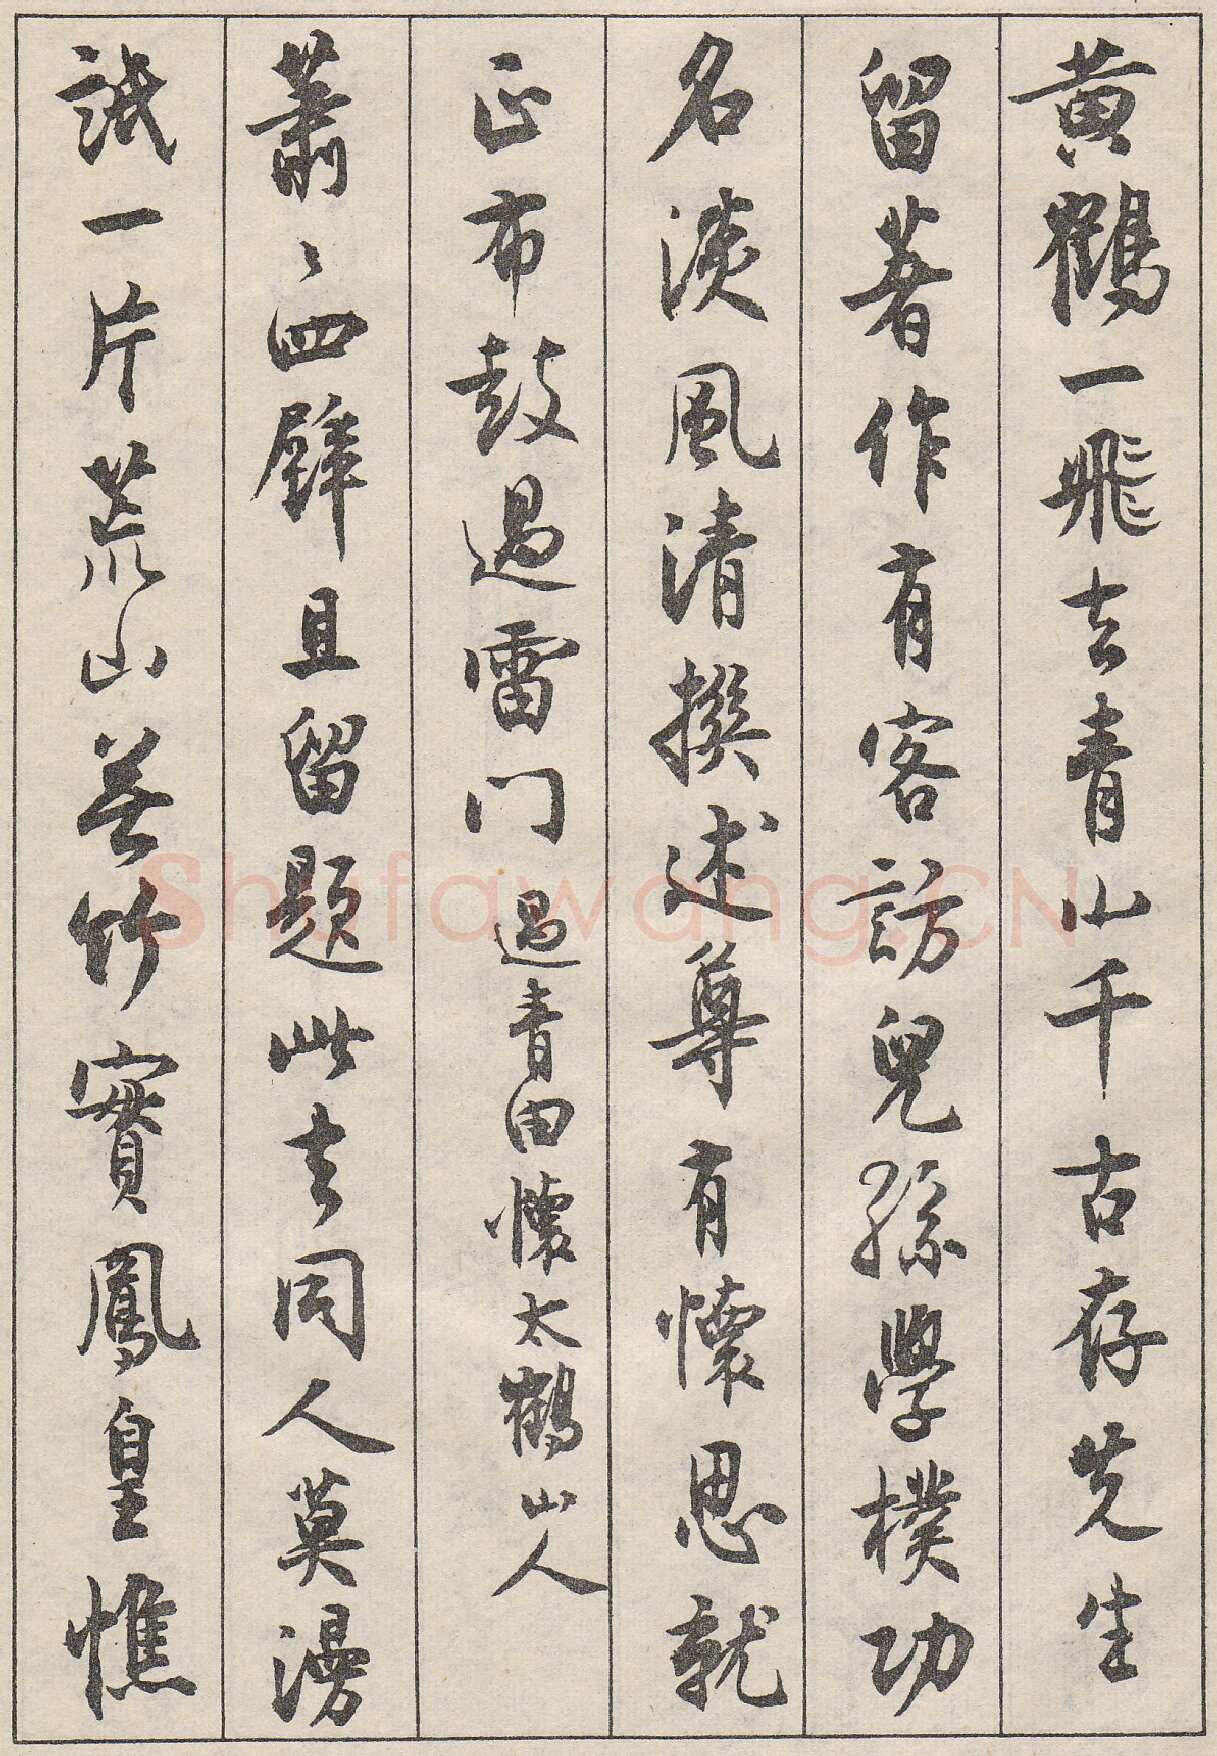 黄鶴一飛去青山千古存先生
留著作有客訪兒孫學樸功
名淡風清撰述尊有懷思就
正布鼓過雷门 過青田懷太鶴山人
蕭〻四壁且留題此去同人莫漫
詆一片荒山无竹實鳳皇憔
Shufawang.CN